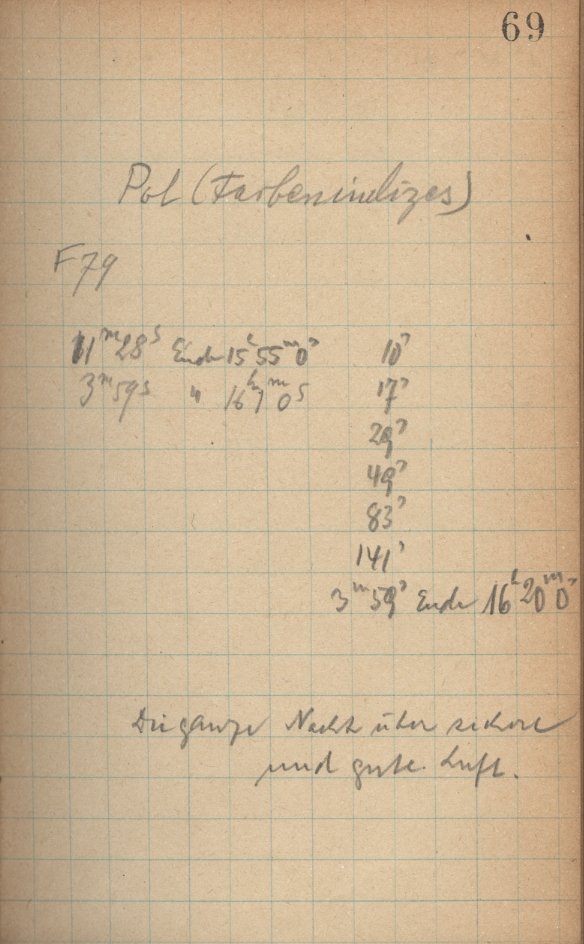 69
Pol (Farbenindizes)
F 79
11ᵐ28ˢ Ende 15ʰ55ᵐ0ˢ 10ˢ
3ᵐ59ˢ " 16ʰ7ᵐ0ˢ 17ˢ
29ˢ
49ˢ
83ˢ
141ˢ
3ᵐ59ˢ Ende 16ʰ20ᵐ0ˢ
Die ganze Nacht über
und gute Luft.